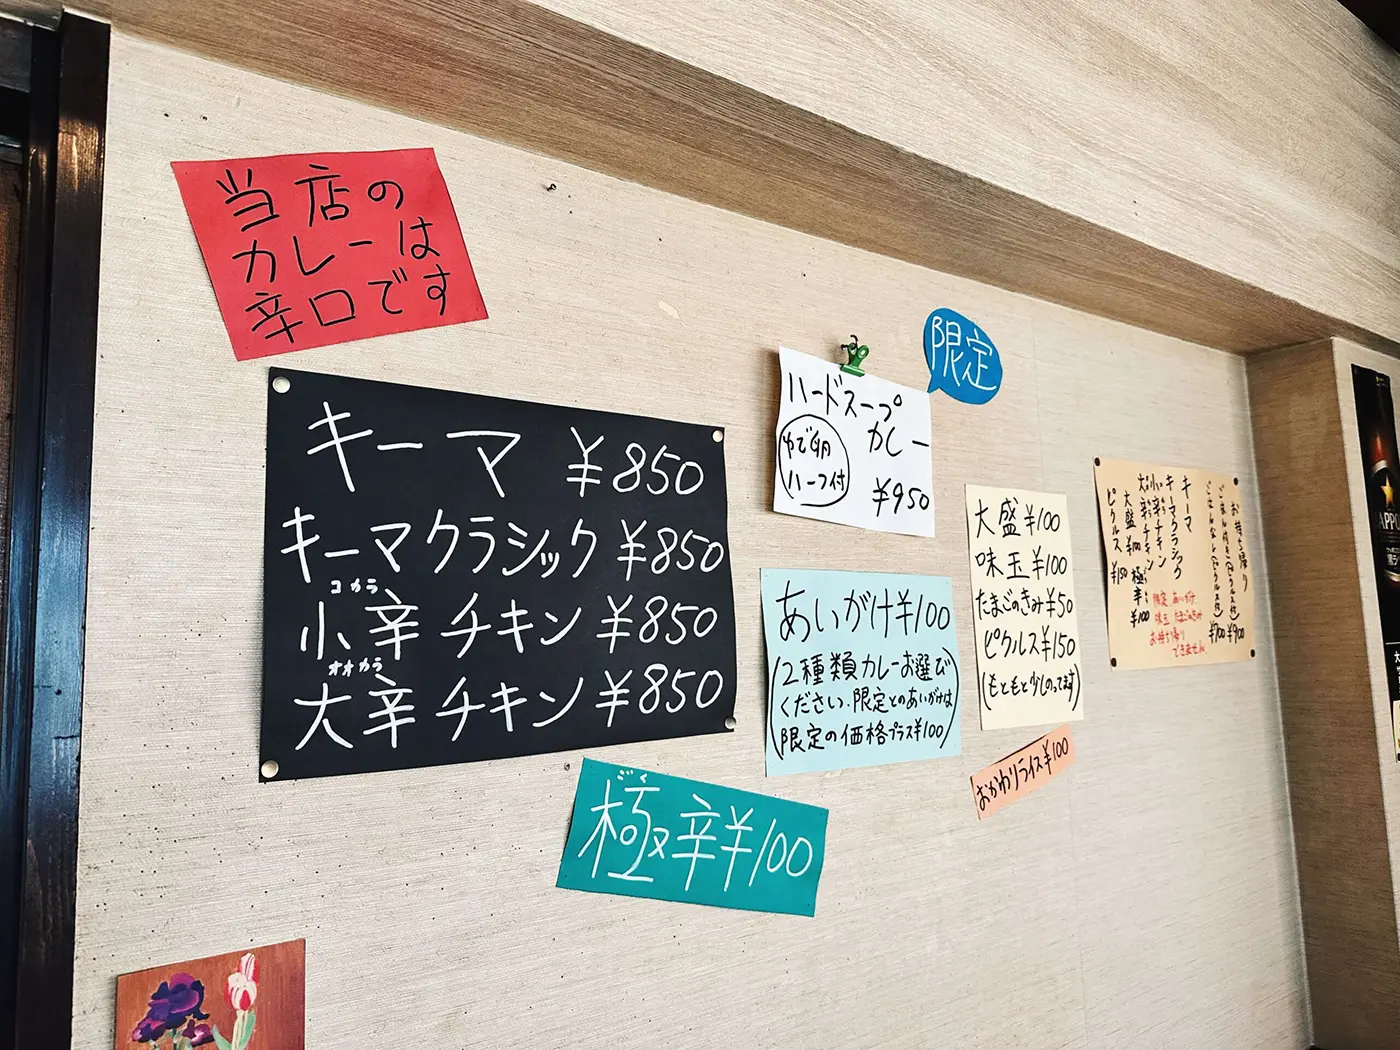 当店の
カレーは
辛口です
キーマ ¥850
キーマクラシック ¥850
コカラ
小辛チキン ¥850
オオカラ
大辛チキン ¥850
ごく
極辛¥100
限定
ハードスープ
カレー
ゆで卵
ハーフ付
¥950
あいがけ¥100
(2種類カレーお選び
ください.限定とのあいがけは
限定の価格プラス¥100)
大盛¥100
味玉¥100
たまごのきみ¥50
ピクルス¥150
(もともと少しのってます)
おかわりライス¥100
お持ち帰り
ごはん付き(ピクルス付) ¥900
ごはんなし(ピクルス付) ¥700
キーマ
キーマクラシック
小辛チキン
大辛チキン
大盛¥100 極辛¥100
ピクルス ¥150
限定 あいがけ
味玉 たまごのきみ
お持ち帰り
できません
SAPPO